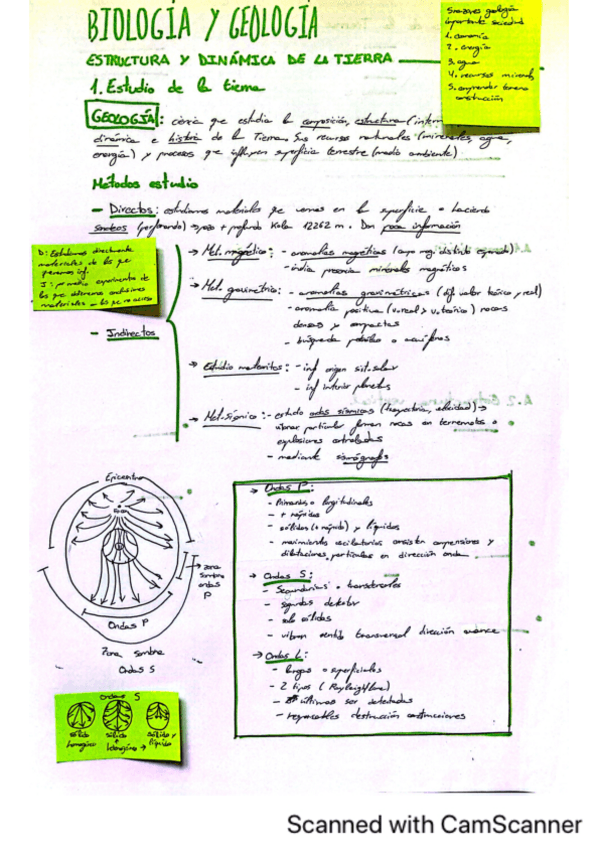 BIOLOGÍA Y GEOLOGÍA
5 razones geología
importante sociedad
1. economía
2. energía
3. agua
4. recursos minerales
5. comprender terreno
construcción
ESTRUCTURA Y DINÁMICA DE LA TIERRA
1. Estudio de la tierra
GEOLOGÍA: ciencia que estudia la composición, estructura (intern
dinámica e historia de la Tierra. Sus recursos naturales (minerales, agua,
energía) y procesos que influyen superficie terrestre (medio ambiente)
Métodos estudio
- Directos: estudiamos materiales que vemos en la superficie o haciendo
sondeos (perforando) → pozo + profundo Kola 12262 m. Dan poca información
D: Estudiamos directamente
materiales de los que
- Indirectos
→ Met. magnético: - anomalías magnéticas (campo mag. distinto esperado)
- indica presencia minerales magnéticos
→ Met. gravimétrico: - anomalías gravimétricas (dif. valor teórico y real)
- anomalía positiva (v.real > v.teórico) rocas
densas y compactas
- búsqueda petróleo o acuíferos
→ Estudio meteoritos: - inf origen sist. solar
- inf interior planetas
→ Met. sísmico: - estudio ondas sísmicas (trayectoria, velocidad) →
vibrar partículas forman rocas en terremotos o
explosiones controladas
- mediante sismógrafos
Epicentro
zona
sombra
ondas
P
Ondas P
Zona sombra
Ondas S
→ Ondas P:
- Primarias o longitudinales
- + rápidas
- sólidos (+ rápido) y líquidos
- movimientos oscilatorios consisten compresiones y
dilataciones, partículas en dirección onda
→ Ondas S:
- Secundarias o transversales
- segundas detectar
- solo sólidos
- vibran sentido transversal dirección avance
→ Ondas L:
- largas o superficiales
- 2 tipos (Rayleigh/love)
- últimas ser detectadas
- responsables destrucción construcciones
Ondas S
sólido
homogéneo
sólido
sólido y
líquido
Scanned with CamScanner